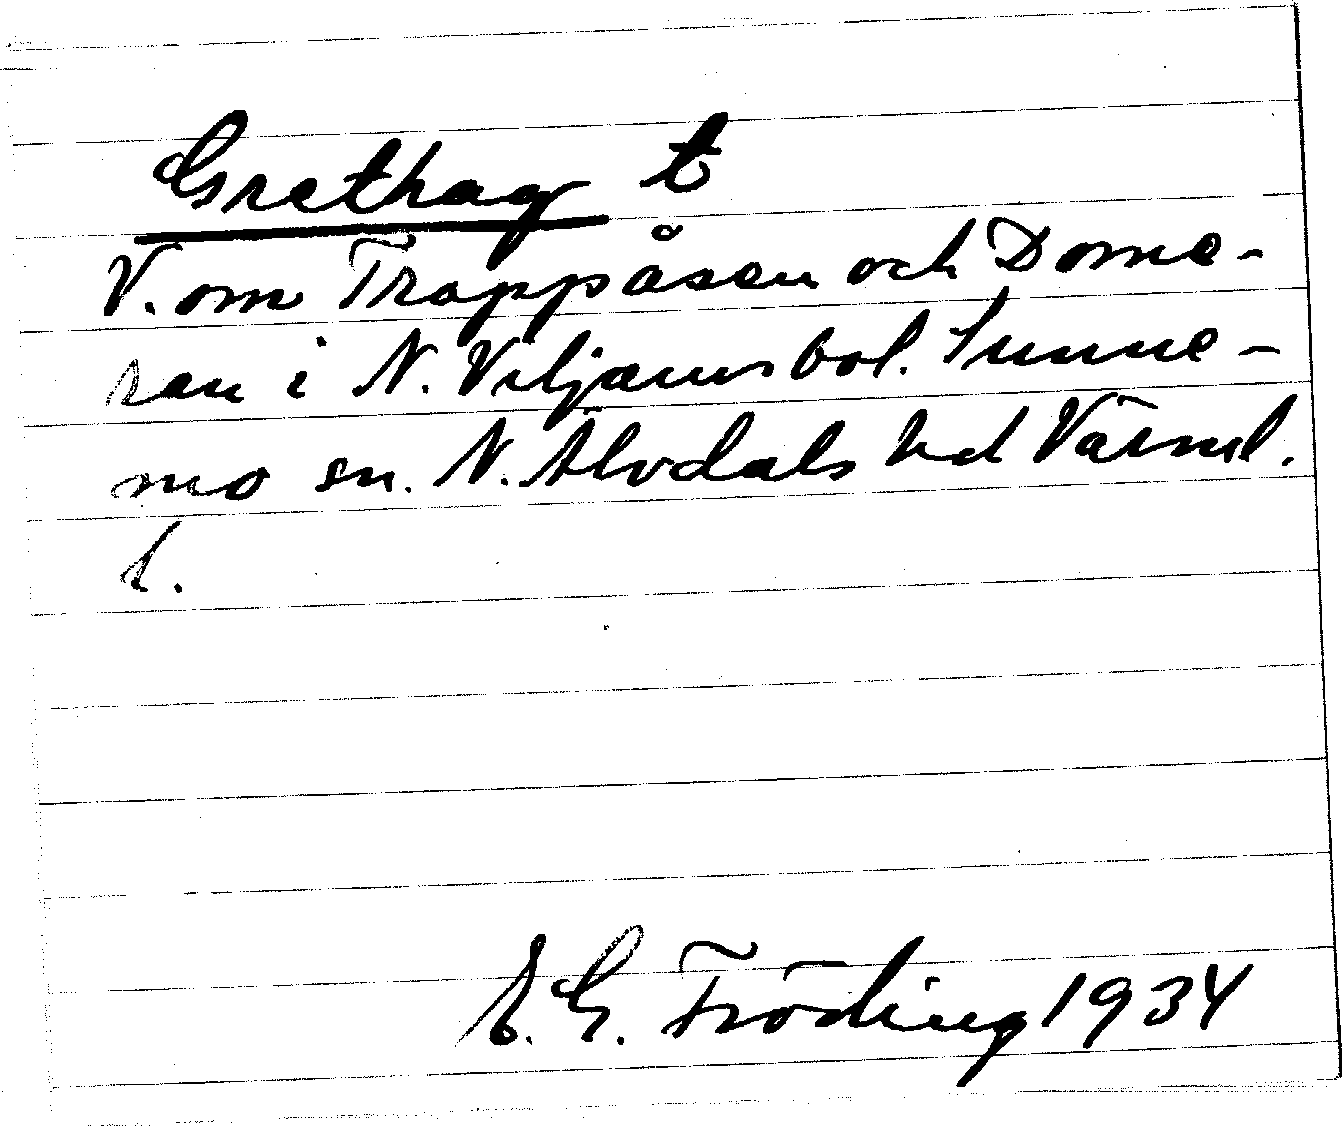 Grethag t
V. om Trappåsen och Dome-
ran i N. Viljamsbol. Sunne-
mo sn. N. Älvdals hd Värml.
l.
E. G. Fröding 1934